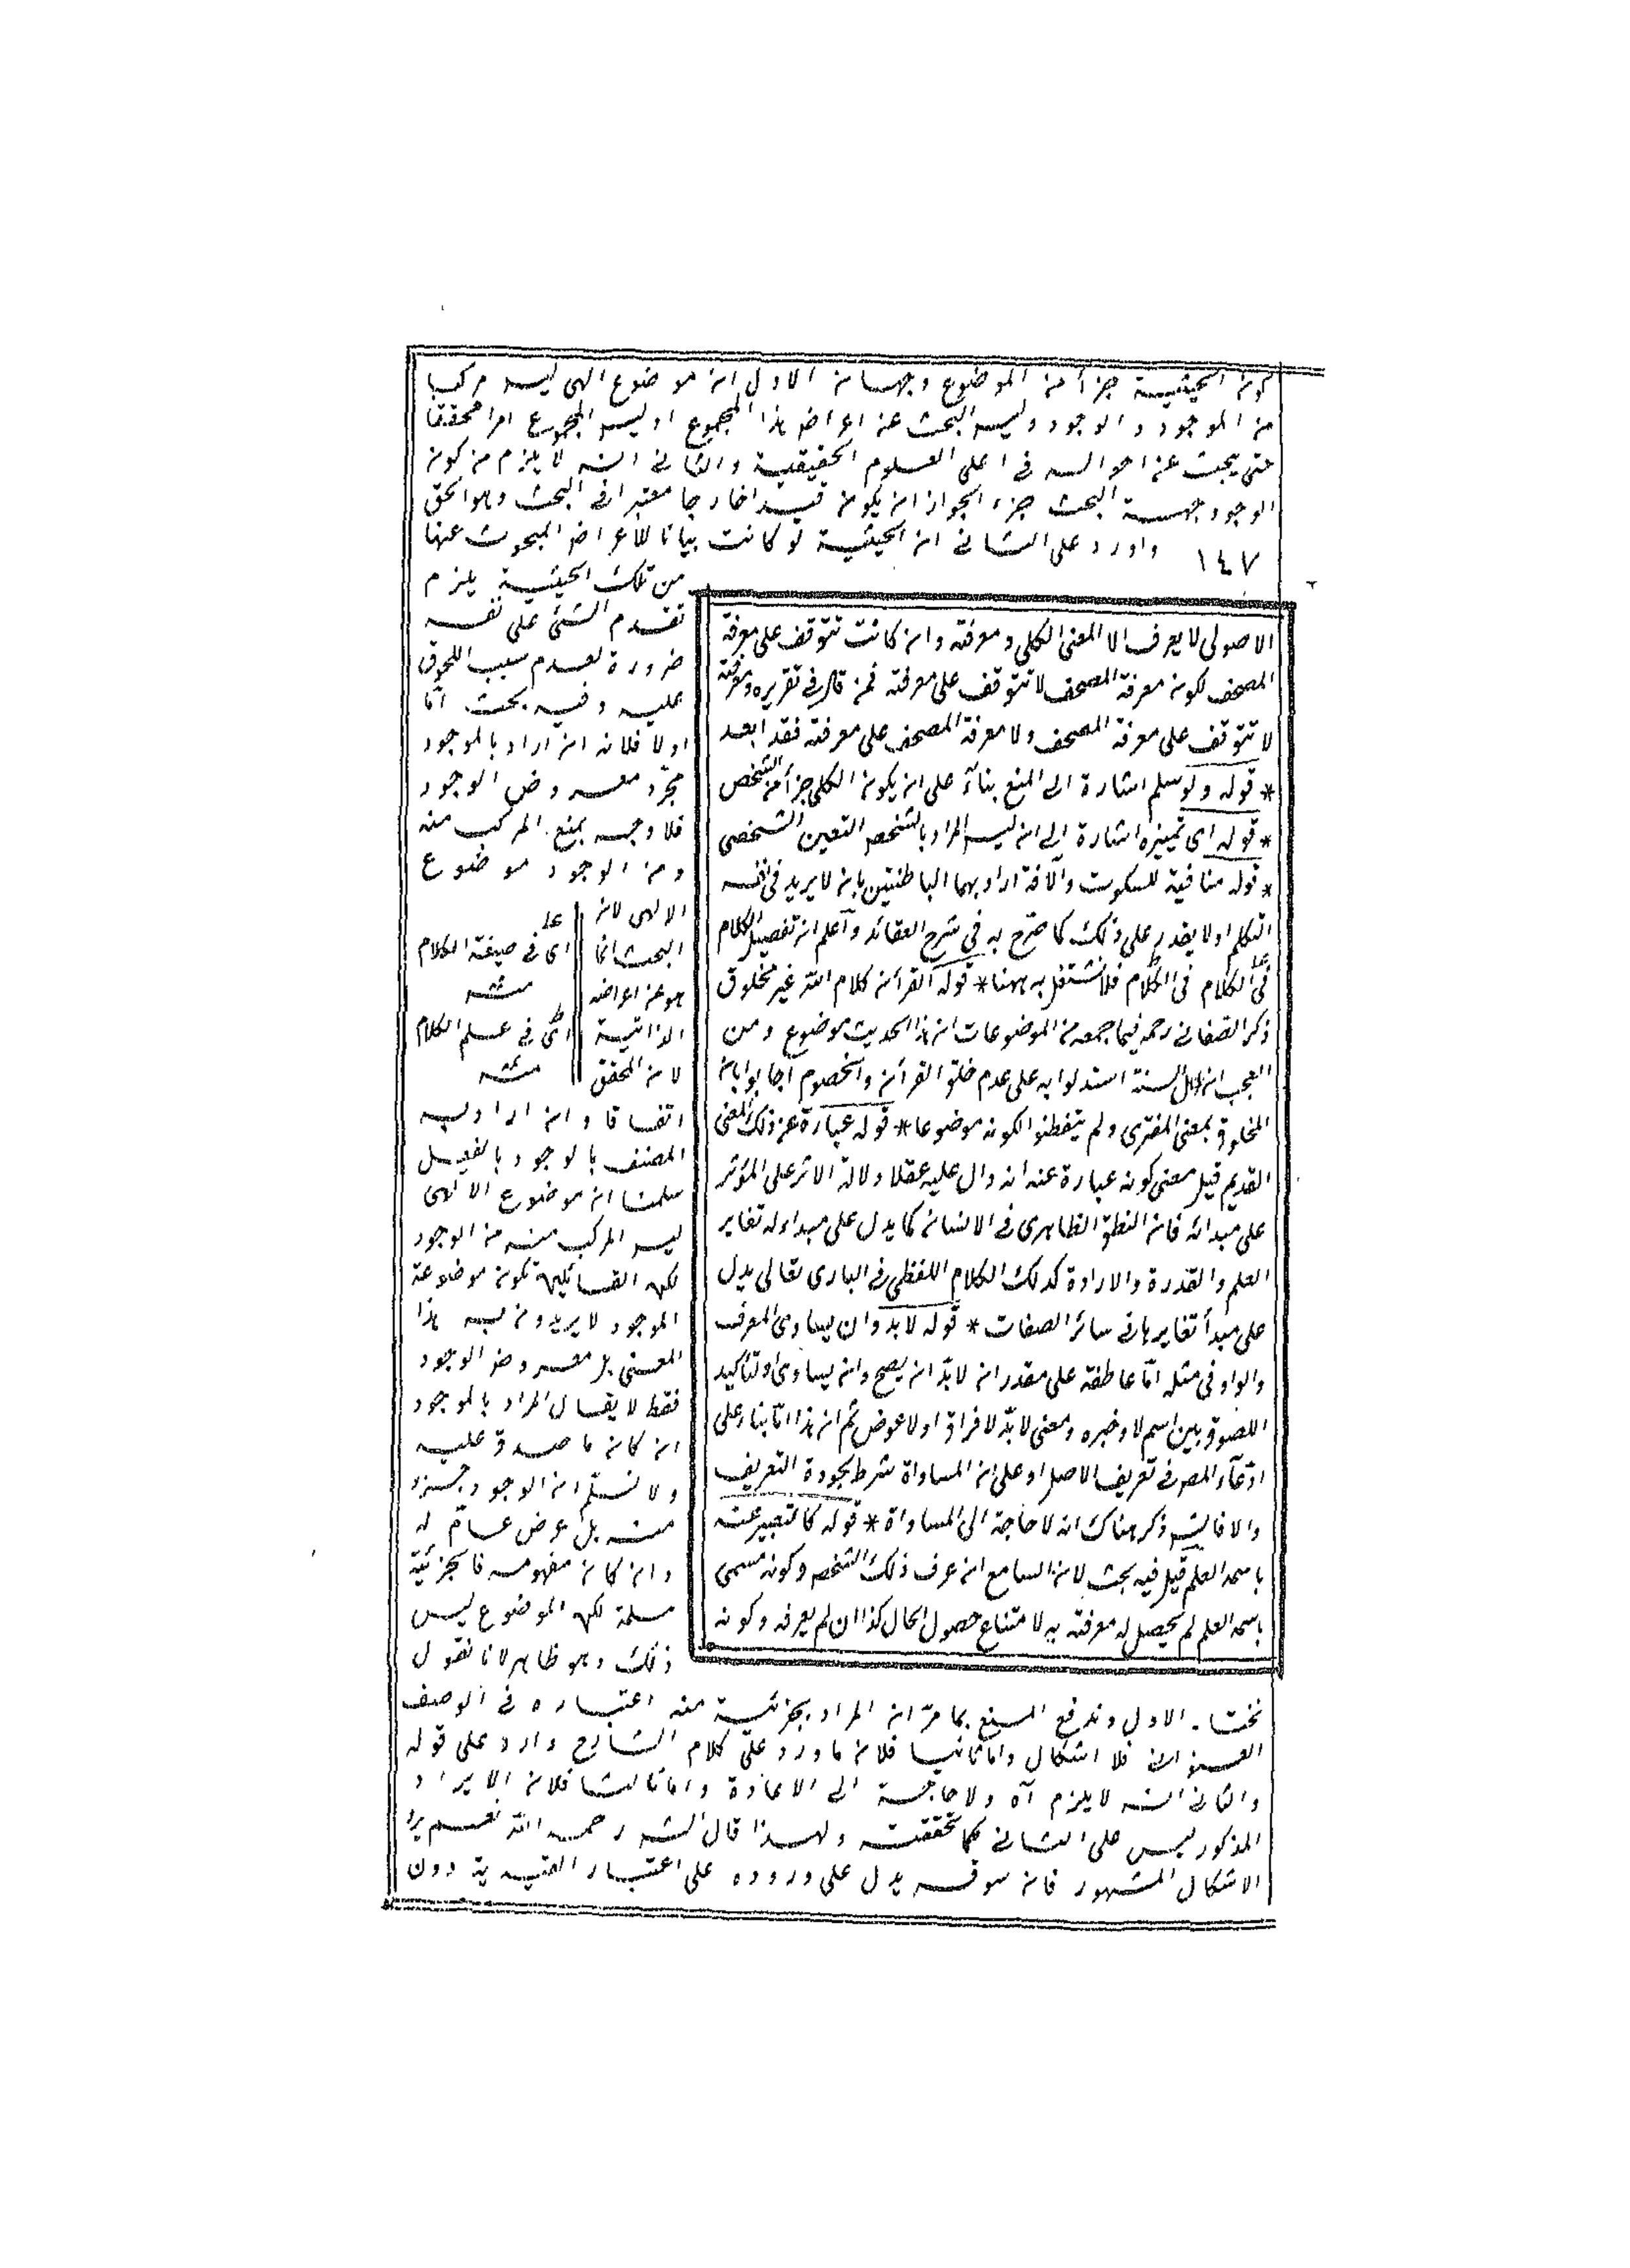 كون الحيثية جزأ من الموضوع وجهان الاول ان موضوع الهى ليس مركبا
من الموجود والوجود وليس البحث عن اعراض هذا المجموع اذ ليس المجموع امرا محققا
حتى يبحث عن احواله فى اعلى العلوم الحقيقية والثانى انه لا يلزم من كون
الوجود جهة البحث جزء الجواز ان يكون قيدا خارجا معتبرا فى البحث وهو الحق
١٤٧ واورد على الثانى ان الحيثية لو كانت بيانا للاعراض المبحوث عنها
من تلك الحيثية يلزم
تقدم الشئ على نفسه
ضرورة تقدم سبب اللحوق
عليه وفيه بحث اما
اولا فلانه ان اراد بالموجود
مجرد معروض الوجود
فلا وجه بمنع المركب منه
ومن الوجود موضوع
الالهى لان
البحث انما
هو عن اعراضه
الذاتية
لان المحقق
اتفاقا وان اراد به
المصنف بالوجود بالفعل
سلمنا ان موضوع الالهى
ليس المركب منه من الوجود
لكن القائلين بكون موضوعه
الموجود لا يريدون به هذا
المعنى بل معروض الوجود
فقط لا يقال المراد بالموجود
ان كان ما صدق عليه
ولا نسلم ان الوجود جزء
منه بل عرض عام له
وان كان مفهومه فالجزئية
مسلمة لكن الموضوع ليس
ذلك وهو ظاهر لانا نقول
نختار الاول وندفع المنع بما مر ان المراد بجزئية منه اعتباره فى الوصف
العنوانى فلا اشكال واما ثانيا فلان ما ورد على كلام الشارح وارد على قوله
والثانى انه لا يلزم آه ولا حاجة الى الاعادة واما ثالثا فلان الايراد
المذكور ليس على الثانى كما تحققته ولهذا قال الشه رحمه الله نعم يرد
الاشكال المشهور فان سوقه يدل على وروده على اعتبار القيدية دون
عل
اى فى صيغة الكلام
منه
اى فى علم الكلام
منه
الاصولى لا يعرف الا المعنى الكلى ومعرفته وان كانت تتوقف على معرفة
المصحف لكون معرفة المصحف لا تتوقف على معرفته فمن قال فى تقريره ومعرفته
لا تتوقف على معرفة المصحف ولا معرفة المصحف على معرفته فقد ابعد
* قوله ولو سلم اشارة الى المنع بناء على ان يكون الكلى جزأ من الشخص
* قوله اى تميزه اشارة الى ان ليس المراد بالشخص التعين الشخصى
* قوله منافية للسكوت والآفة اراد بهما الباطنتين بان لا يريد فى نفسه
التكلم او لا يقدر على ذلك كما صرح به فى شرح العقائد واعلم ان تفصيل الكلام
فى الكلام فى الكلام فلا نشتغل به ههنا * قوله القرأن كلام الله غير مخلوق
ذكر الصغانى رحمه فيما جمعه من الموضوعات ان هذا الحديث موضوع ومن
العجب ان اهل السنة استدلوا به على عدم خلق القرأن والخصوم اجابوا بان
المخلوق بمعنى المفترى ولم يتفطنوا لكونه موضوعا * قوله عبارة عن ذلك المعنى
القديم قيل معنى كونه عبارة عنه انه دال عليه عقلا دلالة الاثر على المؤثر
على مبدائه فان النطق الظاهرى فى الانسان كما يدل على مبداء له تغاير
العلم والقدرة والارادة كذلك الكلام اللفظى فى البارى تعالى يدل
على مبدأ تغايرها فى سائر الصفات * قوله لا بد وان يساوى المعرف
والواو فى مثله اما عاطفة على مقدر ان لا بد ان يصح وان يساوى او لتأكيد
اللصوق بين اسم لا وخبره ومعنى لا بد لا فراق او لا عوض ثم ان هذا اما بناء على
ادعاء المص فى تعريف الاصل او على ان المساواة شرط لجودة التعريف
والا فالشه ذكر هناك انه لا حاجة الى المساواة * قوله كالتعبير عنه
باسمه العلم قيل فيه بحث لان السامع ان عرف ذلك الشخص وكونه مسمى
باسمه العلم لم يحصل له معرفته به لامتناع حصول الحال كذا ان لم يعرفه وكونه